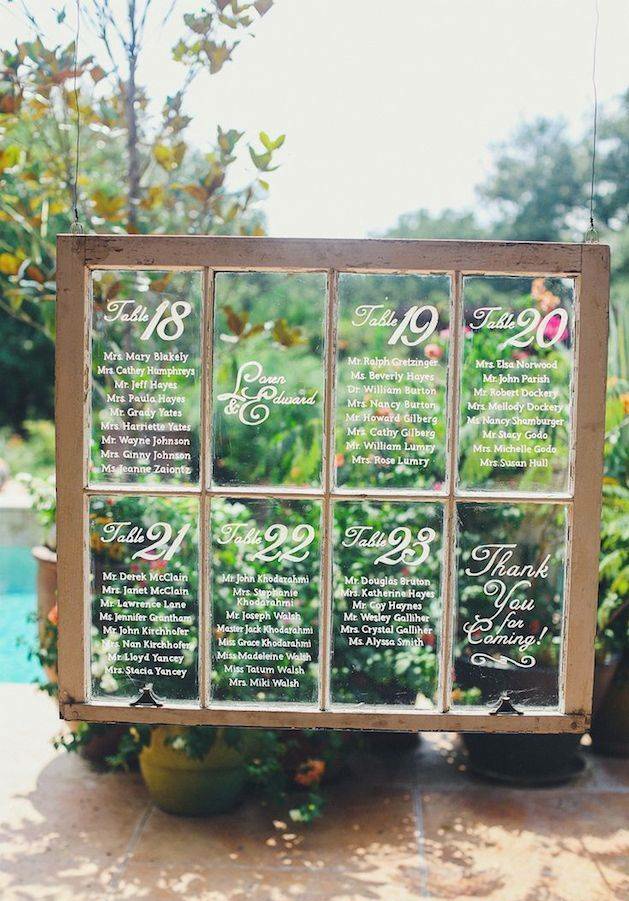 Table 18
Mrs. Mary Blakely
Mrs. Cathey Humphreys
Mr. Jeff Hayes
Mrs. Paula Hayes
Mr. Grady Yates
Mrs. Harriette Yates
Mr. Wayne Johnson
Mrs. Ginny Johnson
Ms. Jeanne Zaiontz
Loren
& Edward
Table 19
Mr. Ralph Gretzinger
Ms. Beverly Hayes
Dr. William Burton
Mrs. Nancy Burton
Mr. Howard Gilberg
Mrs. Cathy Gilberg
Mr. William Lumry
Mrs. Rose Lumry
Table 20
Mrs. Elsa Norwood
Mr. John Parish
Mr. Robert Dockery
Mrs. Mellody Dockery
Ms. Nancy Shamburger
Mr. Stacy Godo
Mrs. Michelle Godo
Mrs. Susan Hull
Table 21
Mr. Derek McClain
Mrs. Janet McClain
Mr. Lawrence Lane
Ms. Jennifer Grantham
Mr. John Kirchhofer
Mrs. Nan Kirchhofer
Mr. Lloyd Yancey
Mrs. Stacia Yancey
Table 22
Mr. John Khodarahmi
Mrs. Stephanie
Khodarahmi
Mr. Joseph Walsh
Master Jack Khodarahmi
Miss Grace Khodarahmi
Miss Madeleine Walsh
Miss Tatum Walsh
Mrs. Miki Walsh
Table 23
Mr. Douglas Bruton
Mrs. Katherine Hayes
Mr. Coy Haynes
Mr. Wesley Galliher
Mrs. Crystal Galliher
Ms. Alyssa Smith
Thank
You
for
Coming!